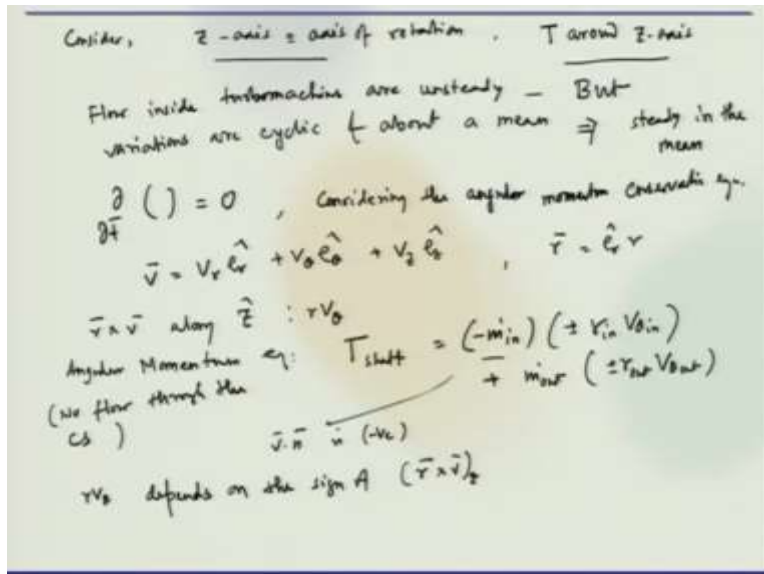 Consider, Z-axis = axis of rotation. T around Z-axis
Flow inside turbomachine are unsteady – But
variations are cyclic & about a mean ⇒ steady in the
mean
∂/∂t ( ) = 0 , Considering the angular momentum conservation eqn.
v̄ = Vr êr + Vθ êθ + Vz êz , r̄ = êr r
r̄ × v̄ along ẑ : rVθ
Angular Momentum eq: T shaft = (-ṁin) (± rin Vθin)
(No flow through the + ṁout (± rout Vθout)
CS )
v̄.n̄ is (-ve)
rVθ depends on the sign of (r̄ × v̄)z